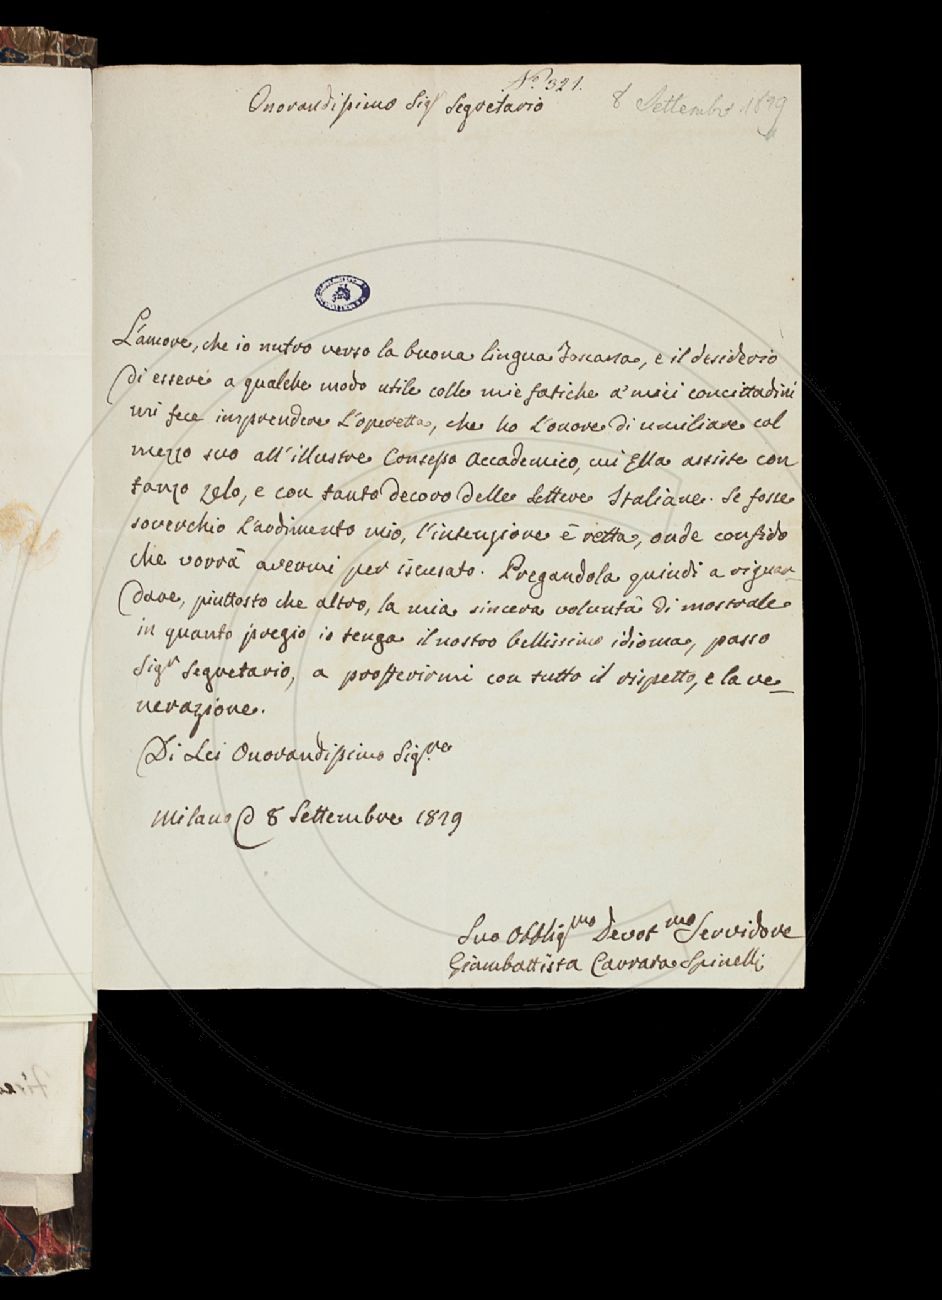 N.º 321.
Onorandissimo Sigʳ Segretario
8 Settembre 1829
L'amore, che io nutro verso la buona lingua Toscana, e il desiderio
di essere a qualche modo utile colle mie fatiche a' miei concittadini
mi fece imprendere l'operetta, che ho l'onore di umiliare col
mezzo suo all'illustre Consesso Accademico, cui Ella assiste con
tanzo zelo, e con tanto decoro delle Lettere Italiane. Se fosse
soverchio l'ardimento mio, l'intenzione è retta, onde confido
che vorrà avermi per iscusato. Pregandola quindi a riguar-
dare, piuttosto che altro, la mia sincera volontà di mostrale
in quanto pregio io tenga il nostro bellissimo idioma, passo
Sigʳ Segretario, a profferirmi con tutto il rispetto, e la ve-
nerazione.
Di Lei Onorandissimo Sigʳᵉ
Milano 8 Settembre 1829
Suo Obbligᵐᵒ Devotᵐᵒ Servidore
Giambattista Carrara Spinelli